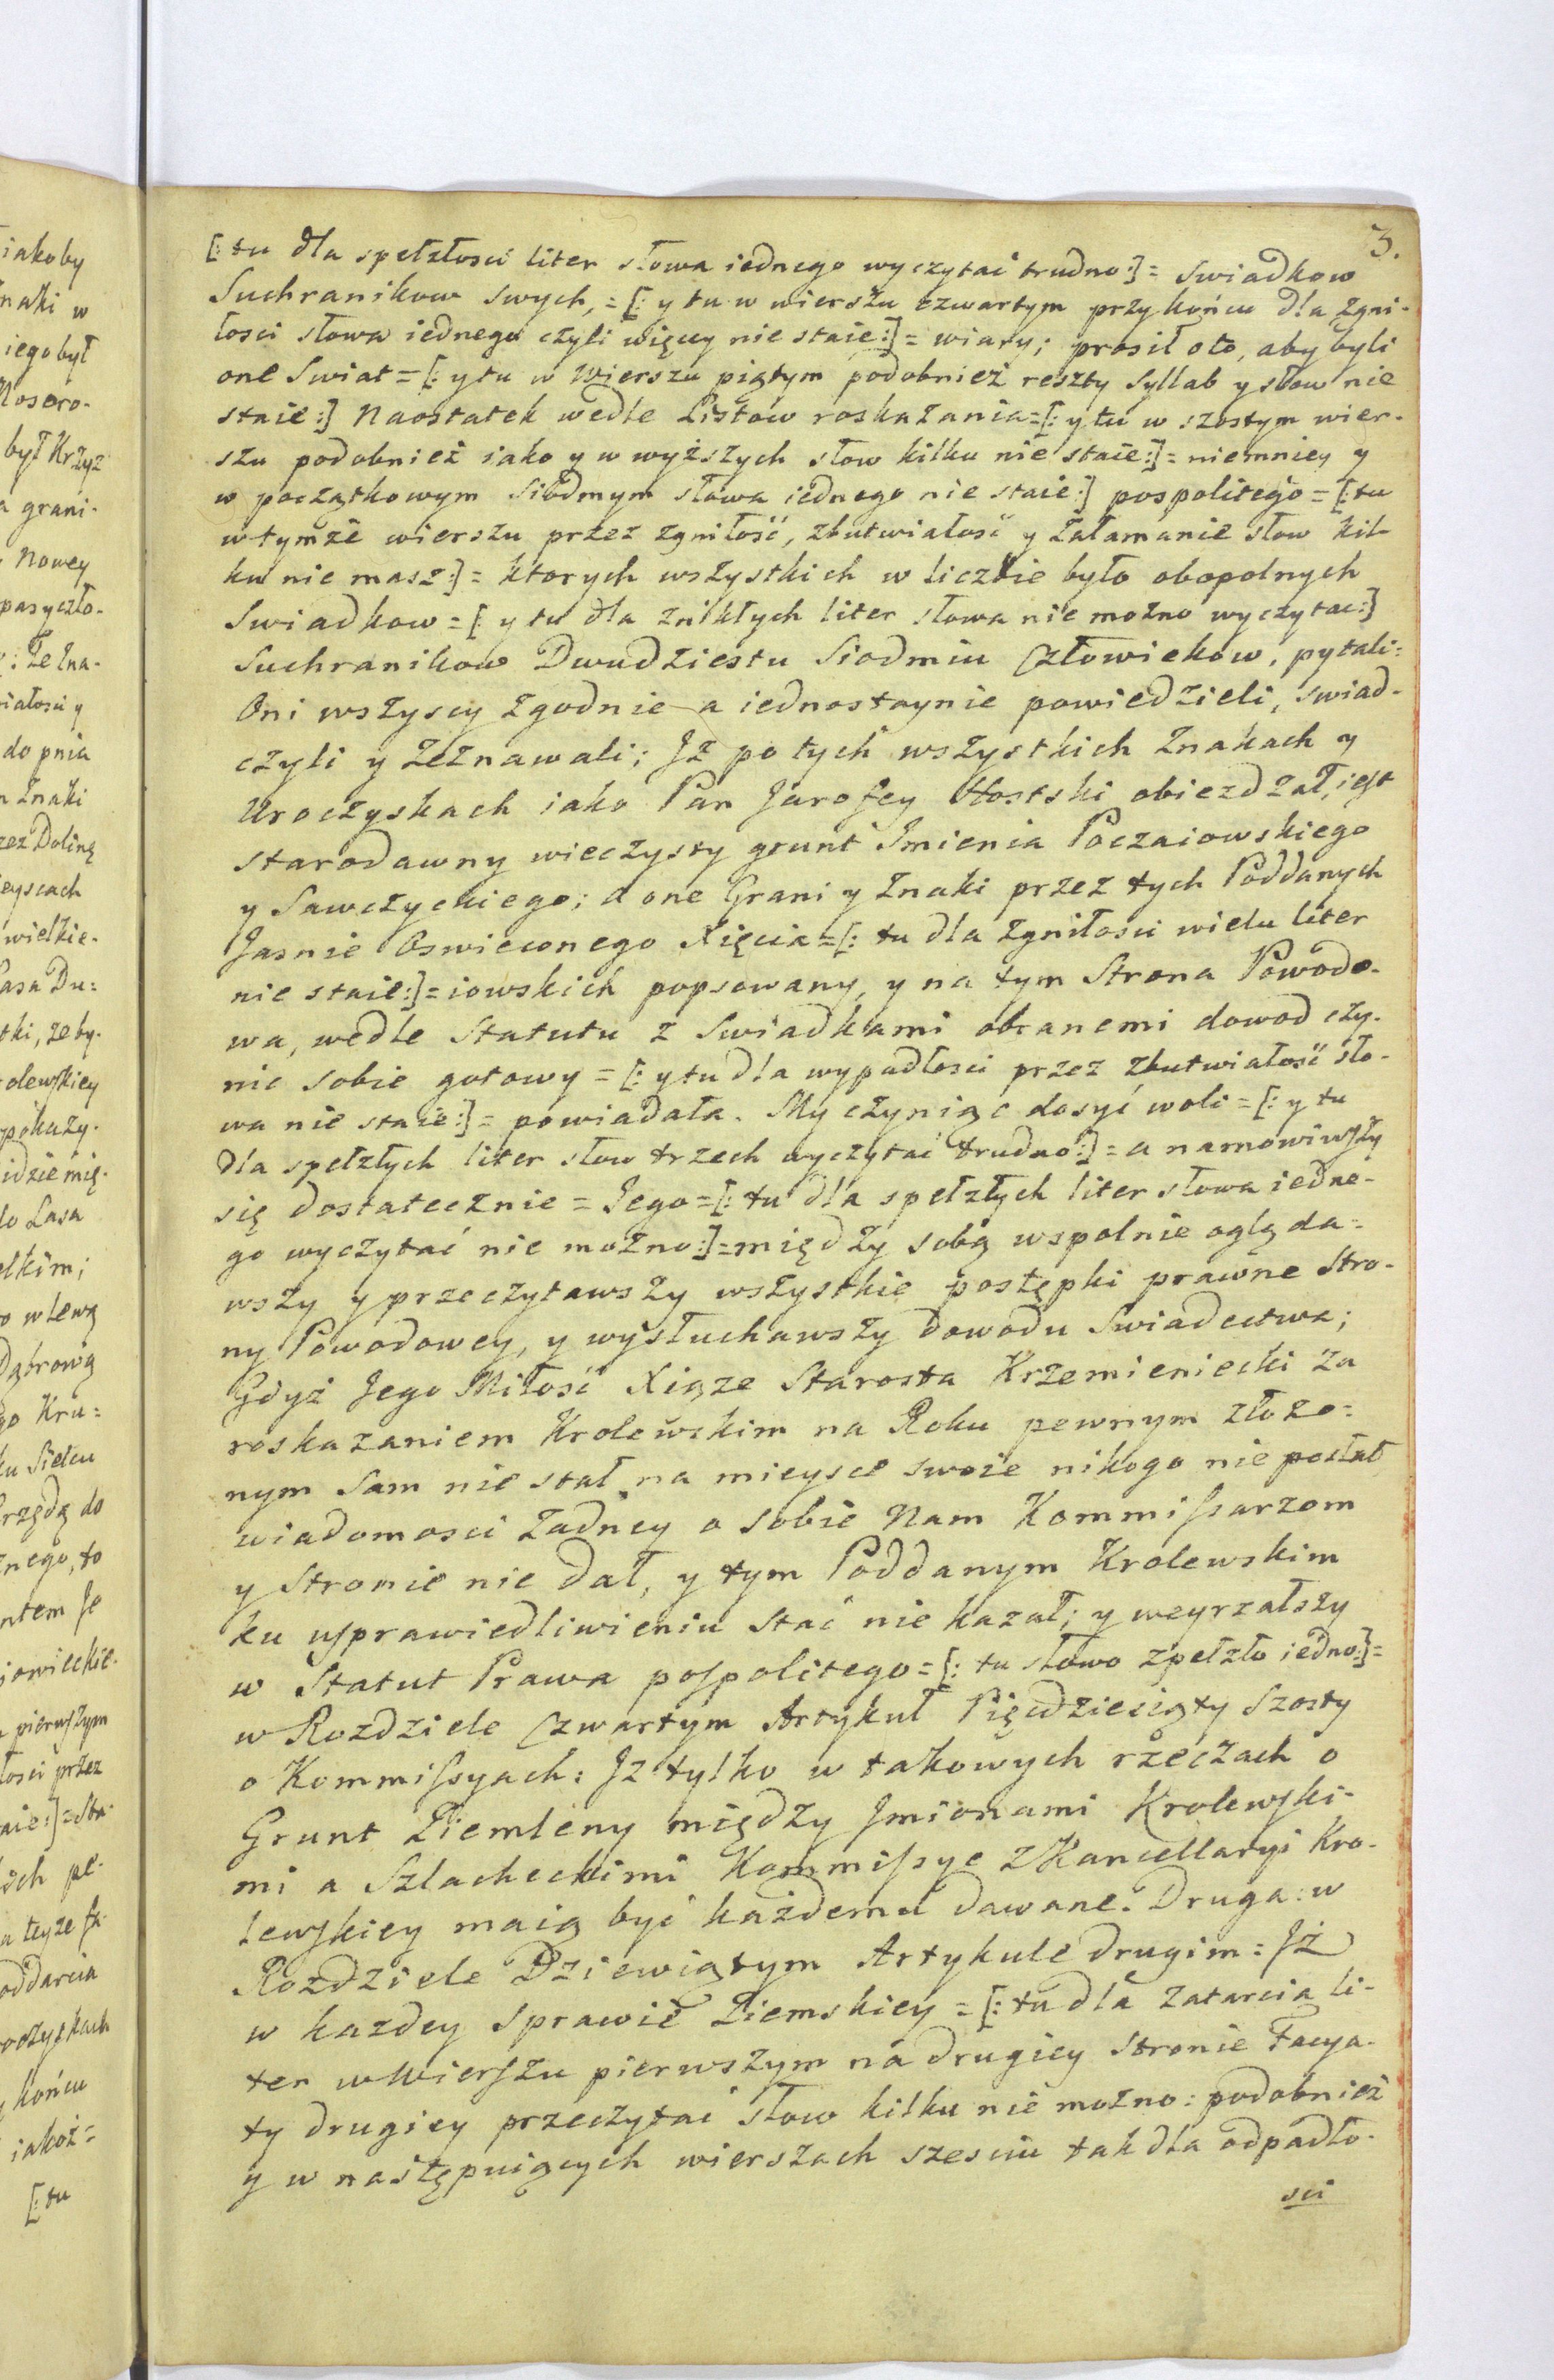 3.
[: tu dla spełzłosci liter słowa iednego wyczytać trudno :] = Swiadkow
Suchranikow swych, = [: y tu w wierszu czwartym przy końcu dla zgni-
łosci słowa iednego czyli więcey nie staie :] = wiary; prosił oto, aby byli
one Swiat = [: y tu w Wierszu piątym podobnież reszty Syllab y słow nie
staie :] Naostatek wedle Listow roskazania = [: y tu w szostym wier-
szu podobnież iako y w wyższych słow kilku nie staie :] = niemniey y
w początkowym siodmym słowa iednego nie staie :] pospolitego = [: tu
w tymże wierszu przez zgniłość, zbutwiałość y załamanie słow kil-
ku nie masz :] = ktorych wszystkich w liczbie było obopolnych
Swiadkow = [: y tu dla znikłych liter słowa nie możno wyczytac :]
Suchranikow Dwudziestu Siodmiu Człowiekow, pytali =
Oni wszyscy zgodnie a iednostaynie powiedzieli, swiad-
czyli y zeznawali; Iż po tych wszystkich znakach y
Uroczyskach iako Pan Jarofey Hostski obiezdzał, iest
starodawny wieczysty grunt Imienia Poczaiowskiego
y Sawczyckiego; A one Grani y znaki przez tych Poddanych
Jasnie Oswieconego Xięcia = [: tu dla zgniłosci wielu liter
nie staie :] = iowskich popsowany, y na tym Strona Powodo-
wa, wedle Statutu z Swiadkami obranemi dowod czy-
nic sobie gotowy = [: y tu dla wypadłosci przez zbutwiałość sło-
wa nie staie :] = powiadała. My czyniąc dosyć woli = [: y tu
dla spełzłych liter słow trzech wyczytać trudno :] = a namowiwszy
się dostatecznie = Jego = [: tu dla spełzłych liter słowa iedne-
go wyczytać nie możno :] = między sobą wspolnie oględa =
wszy y przeczytawszy wszystkie postępki prawne Stro-
ny Powodowey, y wysłuchawszy dowodu Swiadectwa;
Gdyż Jego Miłość Xiąze Starosta Krzemieniecki za
roskazaniem Krolewskim na Roku pewnym złożo =
nym Sam nie stał na mieysce swoie nikogo nie posłał
wiadomosci żadney o sobie Nam Kommissarzom
y Stronie nie dał, y tym Poddanym Krolewskim
ku usprawiedliwieniu stać nie kazał; y weyrzałszy
w Statut Prawa pospolitego = [: tu słowo zpełzło iedno :] =
w Rozdziele Czwartym Artykuł Pięcdziesiąty Szosty
o Kommissyach: Iż tylko w takowych rzeczach o
Grunt Ziemleny między Imionami Krolewski-
mi a Szlacheckimi Kommissye z Kancellaryi Kro-
lewskiey maią być każdemu dawane. Druga: w
Rozdziele Dziewiątym Artykule drugim: Iż
w kazdey sprawie Ziemskiey = [: tu dla zatarcia li-
ter w Wierszu pierwszym na drugiey stronie Facya-
ty drugiey przeczytać słow kilku nie możno: podobnież
y w następuiących wierszach szesciu tak dla odpadło-
sci
iakoby
znaki w
iego był
był Krzyz
a grani-
Nowey
do pnia
znaki
zez Dolinę
wielkie-
do Lasa
w lewą
Dąbrową
go Kru =
nego, to
pierwszym
łosci przez
oddarcia
końcu
iakoż =
[: tu